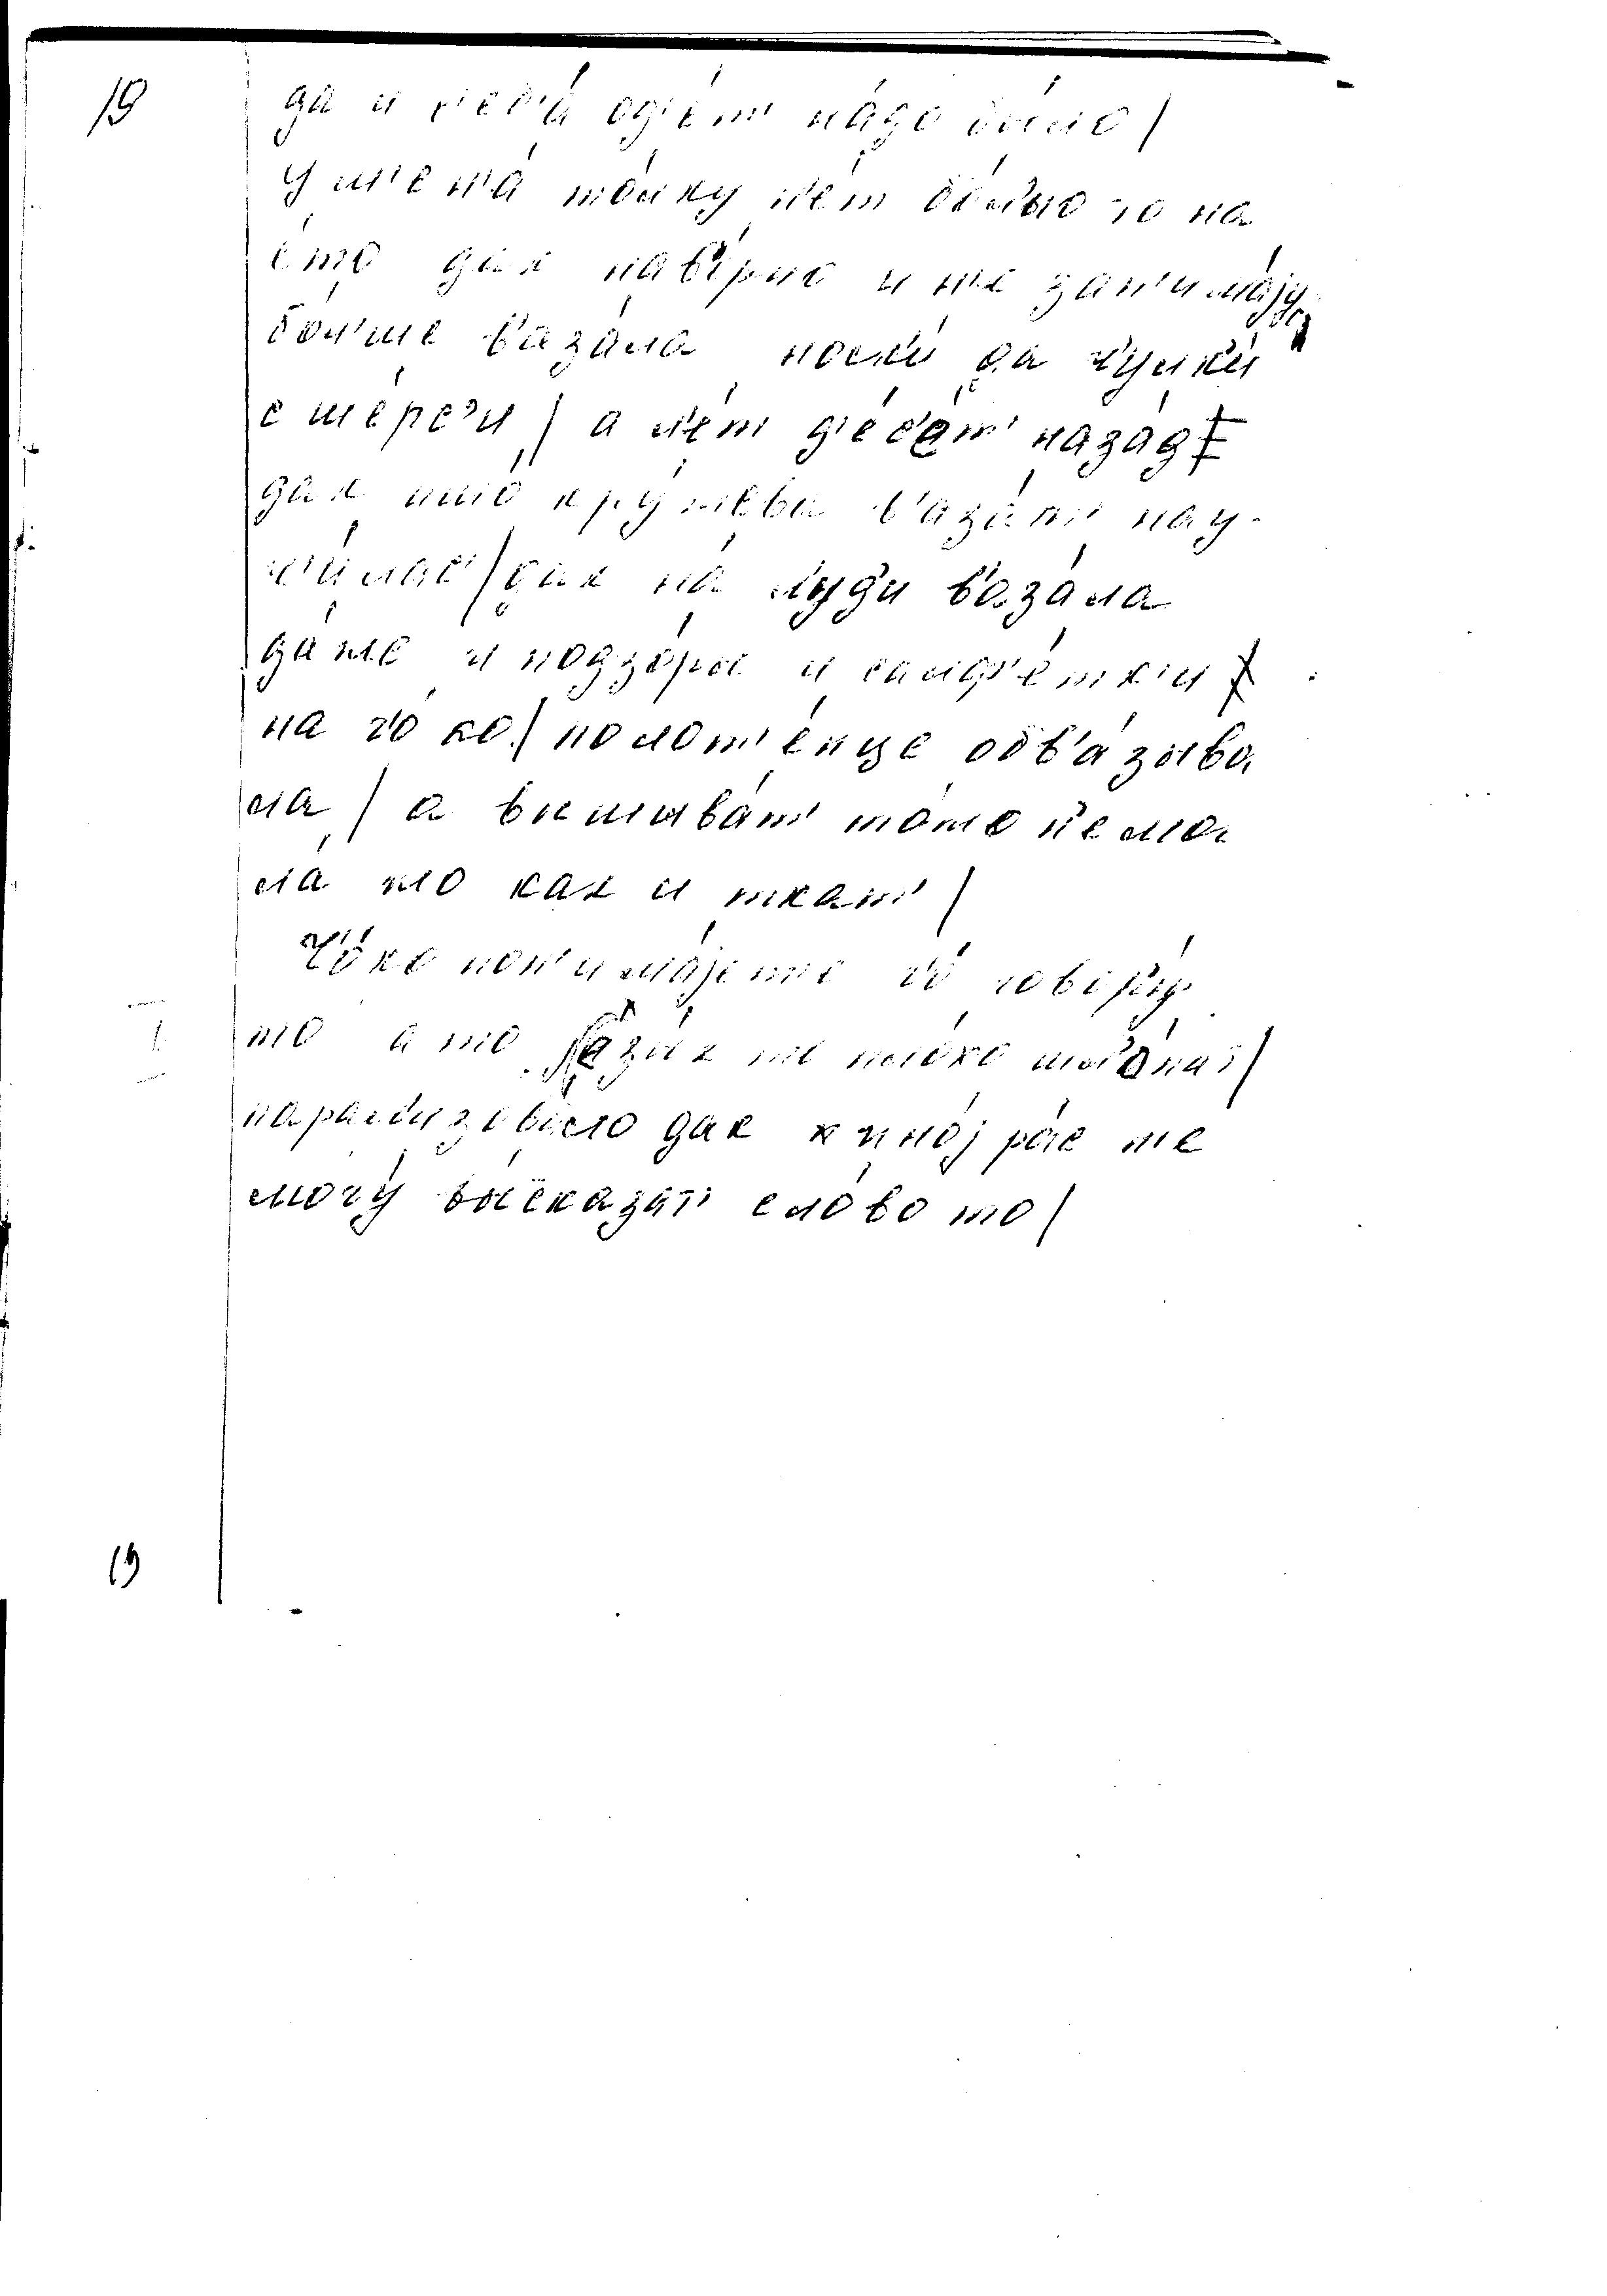 19
да и с'еб'а́ од'е́т' на́до бы́ло /
у мен'а́ то́лку н'е́т бы́ло то на
е́то дак нав'е́рно и н'е зан'има́јус
бо́л'ше в'аза́ла носк'и́ да чулк'и́
с ше́рс'т'и / а л'е́т д'е́с'ат' наза́д
дак што́ кру́жева в'аза́т' нау-
ч'и́лас' / дак на́ л'уд'и в'аза́ла
да́же и подзо́ры и салф'е́тк'и
на чо́ ко / полот'е́нце обв'а́зыва
ла / а вышыва́т' то́то не мо
ла́ то как и ткат' /
Чо́ ко пон'има́јете чо́ говор'у́
то а то јазы́к то пло́хо
парал'изова́ло дак и ино́ј ра́с не
могу́ вы́сказат' сло́во то /
19